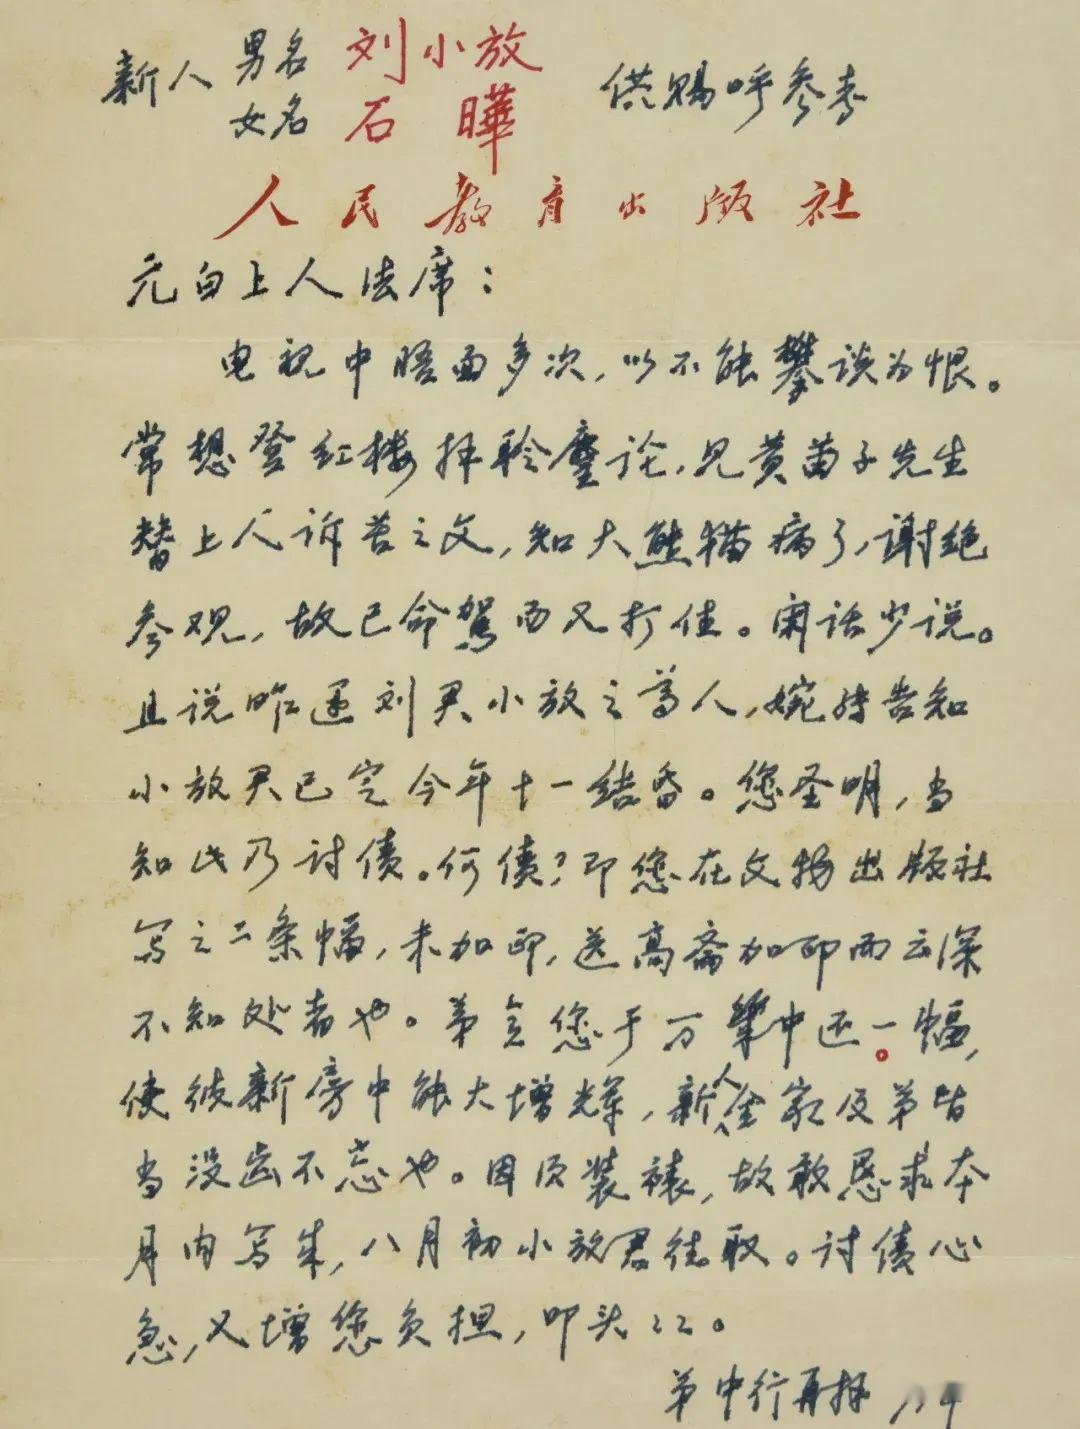 新人 男名 刘小放 供赐呼参考
女名 石 曄
人民教育出版社
元白上人法席：
电视中晤面多次，以不能攀谈为恨。
常想登红楼拜聆麈论，见黄苗子先生
替上人诉苦之文，知大熊猫病了，谢绝
参观，故已命驾而又打住。闲话少说。
且说昨遇刘君小放之尊人，婉转告知
小放君已定今年十一结昏。您圣明，当
知此乃讨债。何债？即您在文物出版社
写之二条幅，未加印，送高斋加印而云深
不知处者也。弟会您于万集中还一幅，
使彼新房中能大增光辉，新人全家及弟皆
当没齿不忘也。因须装裱，故敢恳求本
月内写朱，八月初小放君往取。讨债心
急，又增您负担，叩头叩头。
弟中行再拜